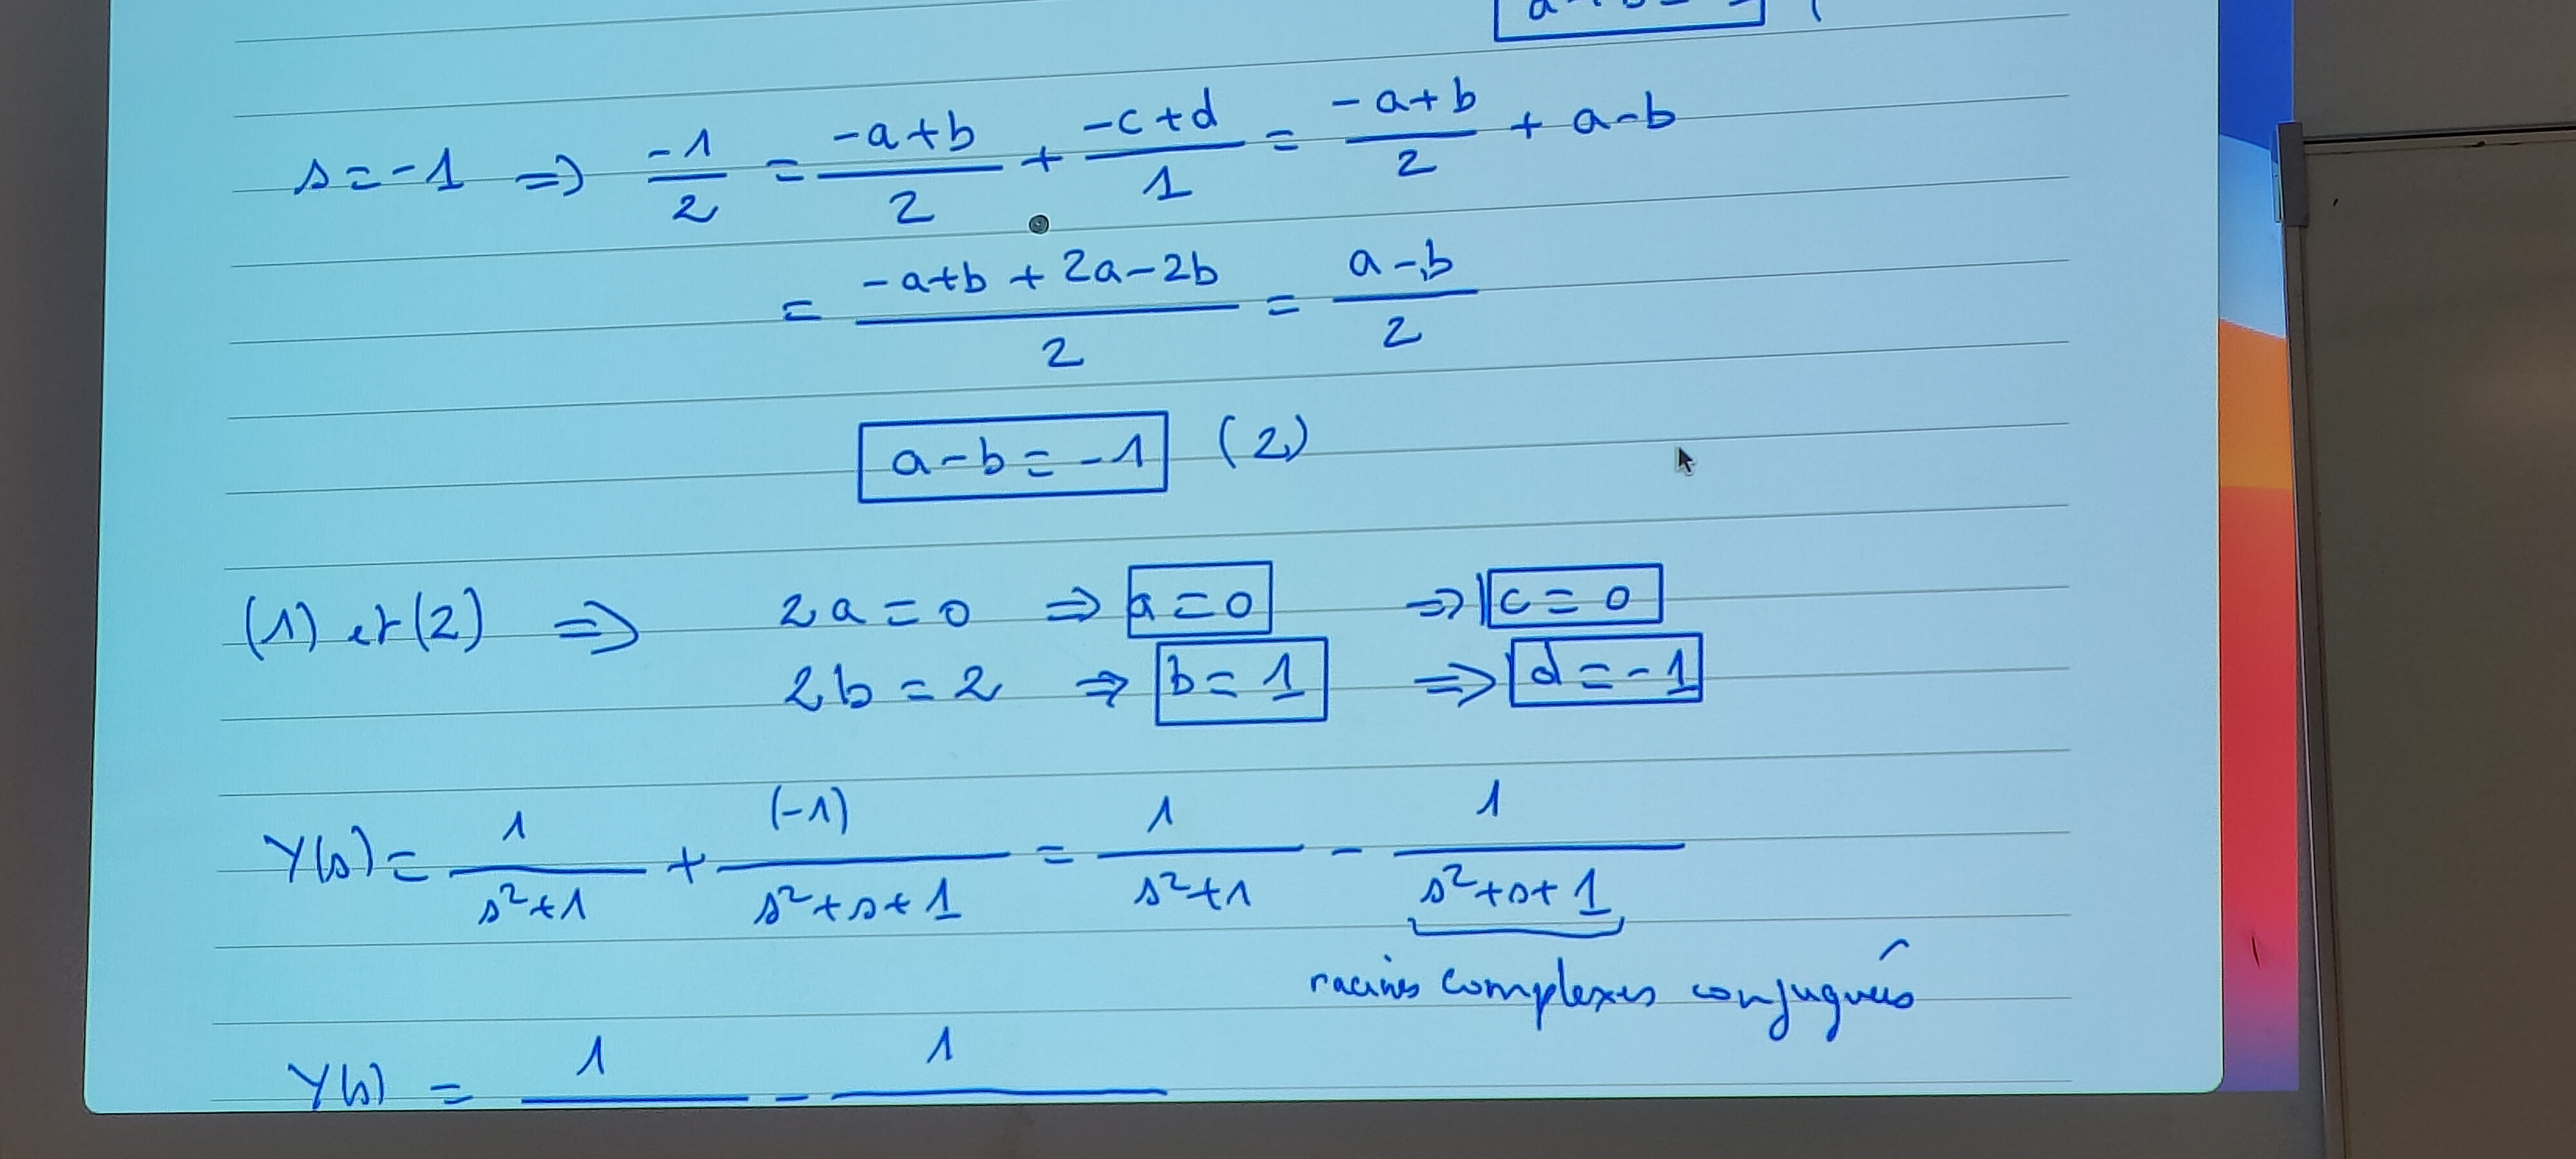 s = -1 ⇒ -1/2 = (-a+b)/2 + (-c+d)/1 = (-a+b)/2 + a-b
= (-a+b + 2a-2b)/2 = (a-b)/2
a-b = -1 (2)
(1) et (2) ⇒ 2a = 0 ⇒ a = 0 ⇒ c = 0
2b = 2 ⇒ b = 1 ⇒ d = -1
Y(s) = 1/(s²+1) + (-1)/(s²+s+1) = 1/(s²+1) - 1/(s²+s+1)
racines complexes conjuguées
Y(s) = 1/ - 1/